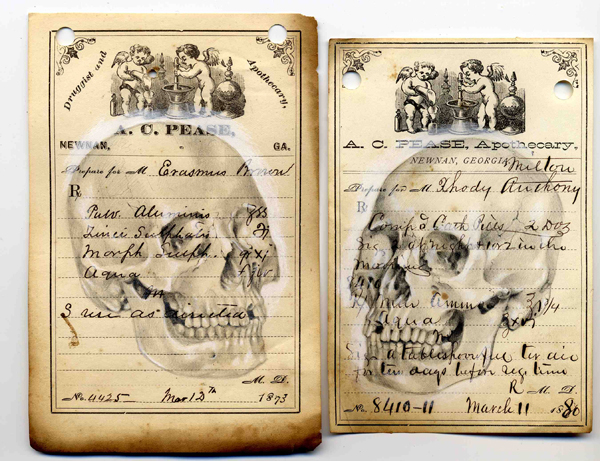 Druggist and Apothecary,
A. C. PEASE,
NEWNAN, GA.
Prepare for M Erasmus Brown
R
Pulv Aluminis ʒss
Zinci Sulphatis ℈j
Morph Sulph grxj
Aqua
m
S use as directed
M. D.
No. 4425 Mar 12th 1873
A. C. PEASE, Apothecary,
NEWNAN, GEORGIA
Milton
Prepare for M Rhody Anthony
R
Comp'd Cath Pills 2 Doz
Sig 2 at night or 2 in the
Morning
8410
Aqua
Sig a tablespoonful ter die
for ten days before reg. time
R M. D.
No. 8410-11 March 11 1880